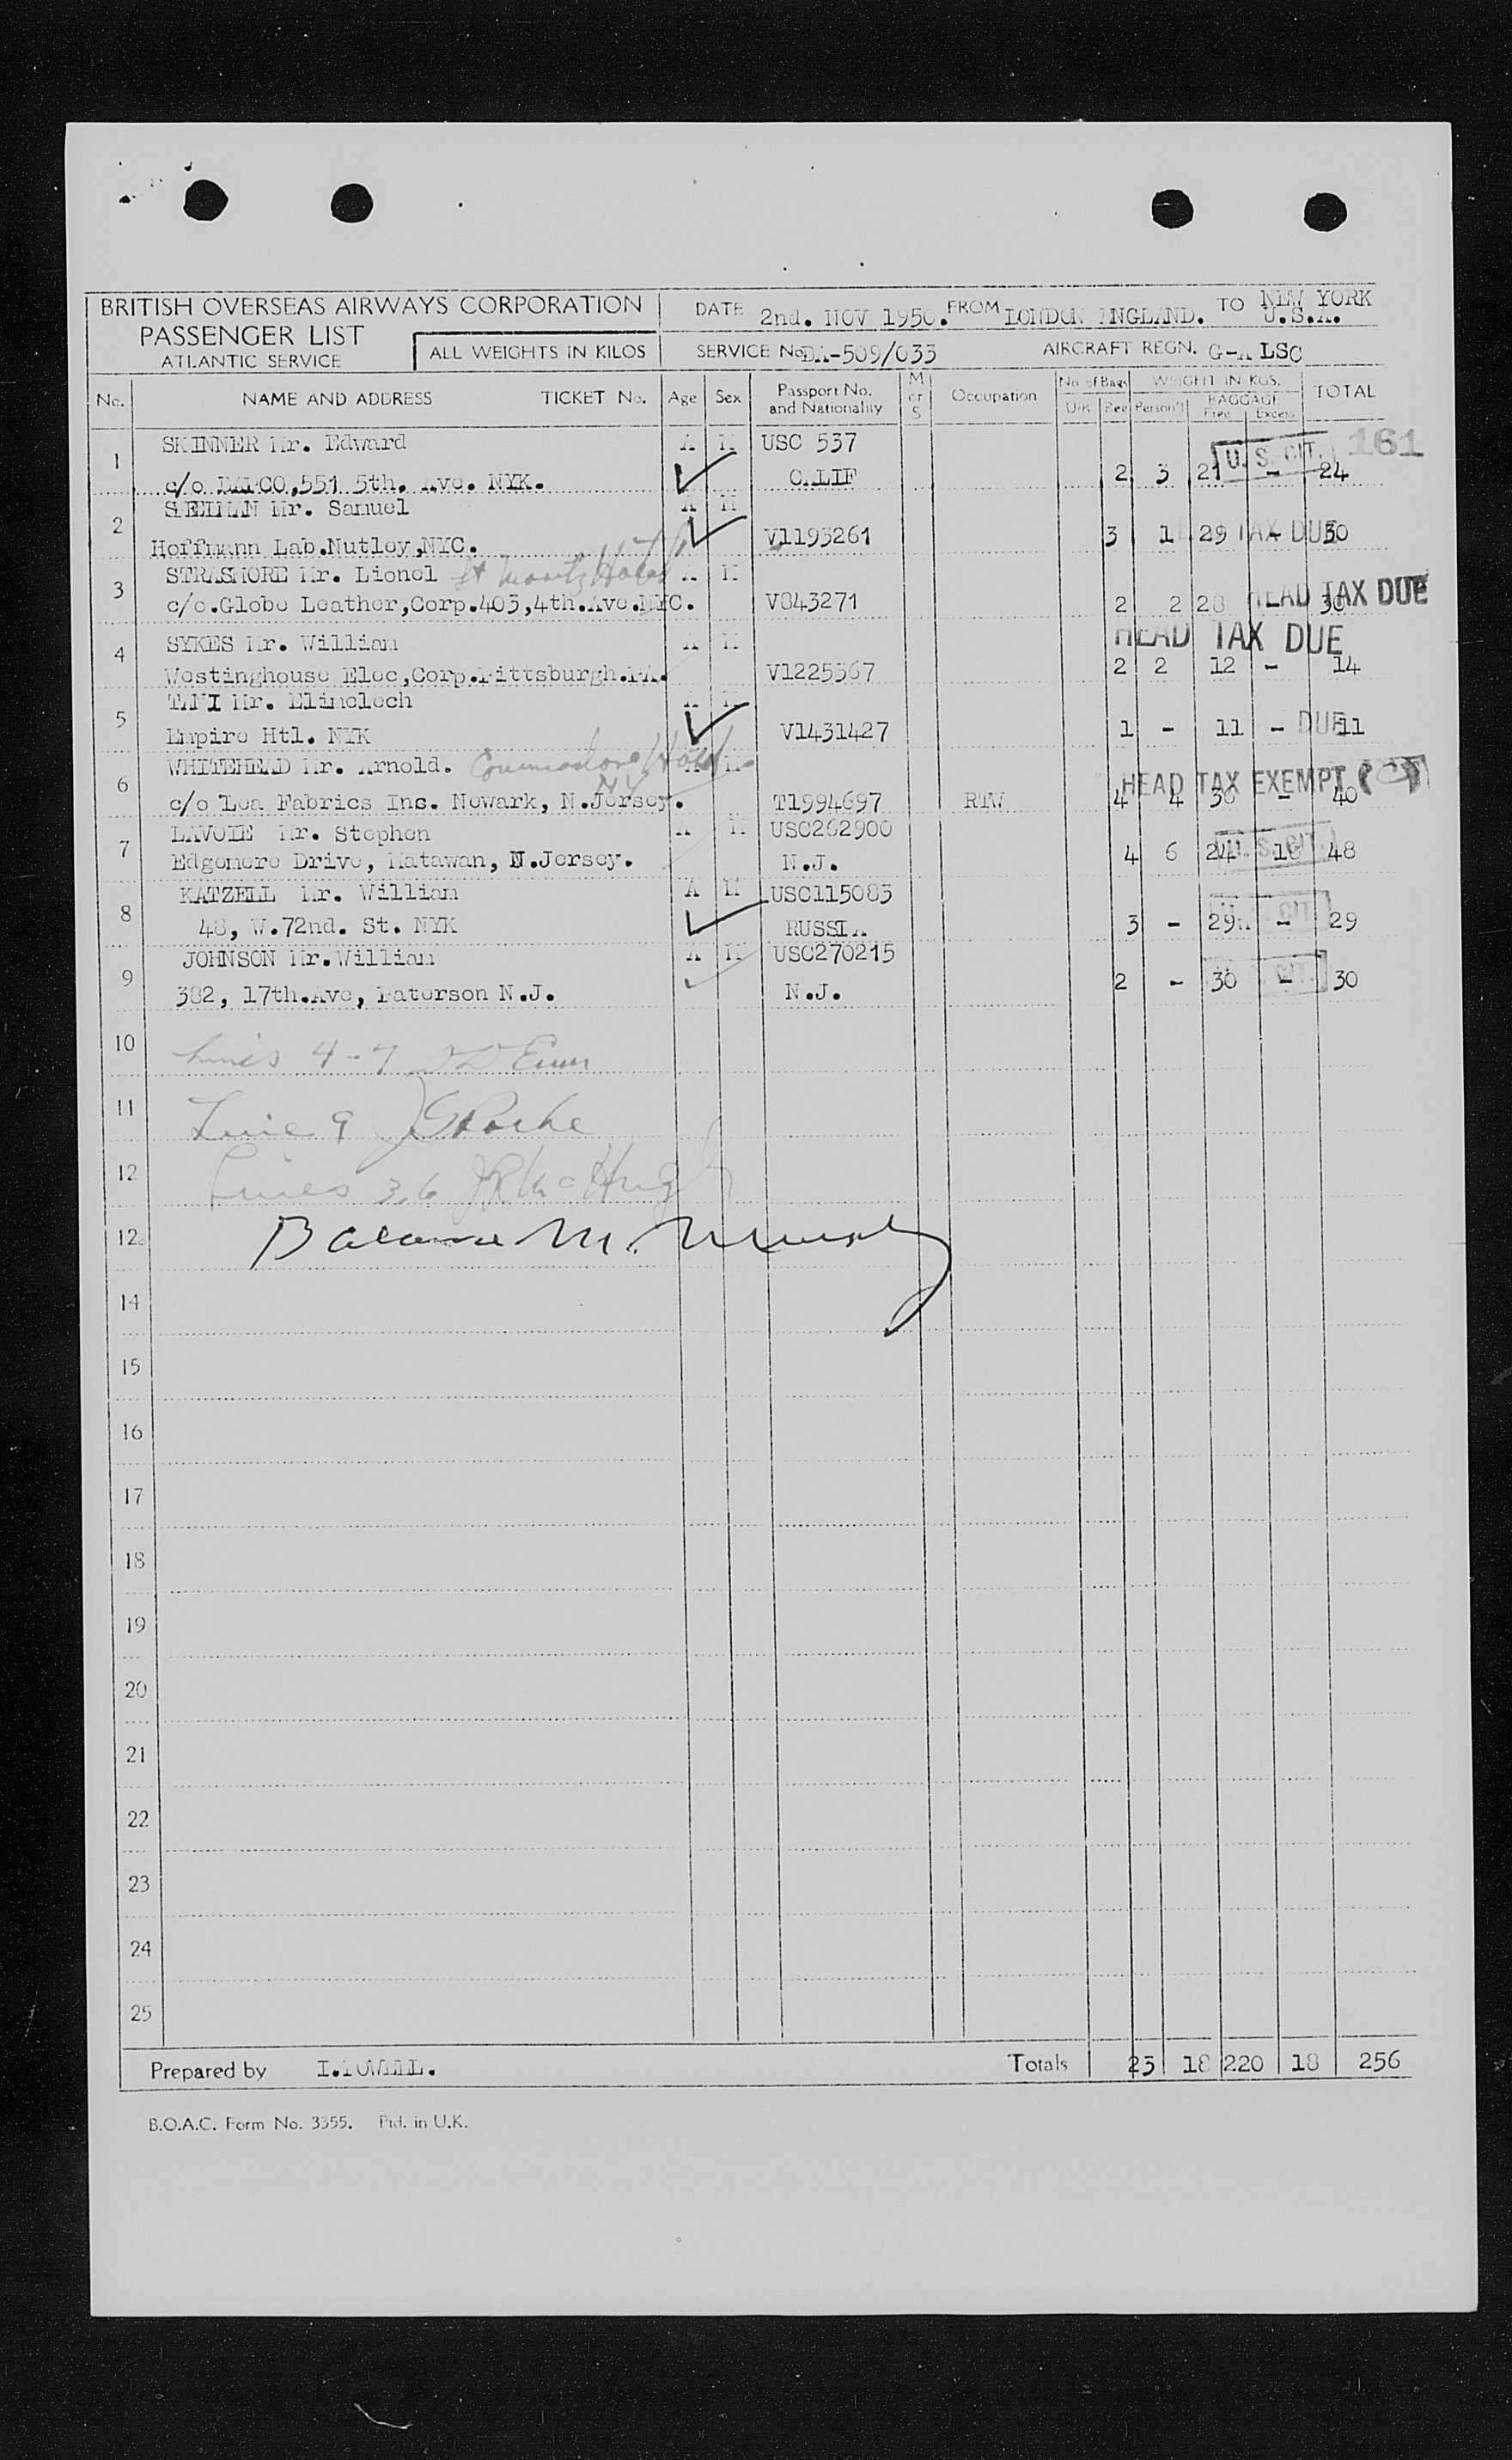 BRITISH OVERSEAS AIRWAYS CORPORATION
PASSENGER LIST
ATLANTIC SERVICE
ALL WEIGHTS IN KILOS
DATE 2nd. NOV 1950. FROM LONDON ENGLAND. TO NEW YORK U.S.A.
SERVICE No. DA-509/033 AIRCRAFT REGN. G-A LSC
No. NAME AND ADDRESS TICKET No. Age Sex Passport No. and Nationality M or S Occupation No of Bags U/R Reg WEIGHT IN KGS. Person'l BAGGAGE Free Excess TOTAL
161
1 SKINNER Mr. Edward A M USC 537 U.S. CIT.
551 5th. Ave. NYK. CALIF 2 3 21 - 24
2 Mr. Samuel A M
Hoffmann Lab.Nutley,NYC. V1193261 3 1 29 TAX DUE 30
3 STRASMORE Mr. Lionel St Moritz Hotel A M
c/o.Globe Leather,Corp.403,4th.Ave.NYC. V843271 2 2 28 30 HEAD TAX DUE
4 SYKES Mr. William A M HEAD TAX DUE
Westinghouse Elec,Corp.Pittsburgh.PA. V1225367 2 2 12 - 14
5 TANI Mr. Elimelech A M
Empire Htl. NYK V1431427 1 - 11 - DUE 11
6 WHITEHEAD Mr. Arnold. Commodore Hotel NY A M HEAD TAX EXEMPT
c/o Lea Fabrics Inc. Newark, N.Jersey. T1994697 RTW 4 4 36 - 40
7 LAVOIE Mr. Stephen A M USC262900 U.S. CIT.
Edgemere Drive, Matawan, N.Jersey. N.J. 4 6 24 18 48
8 KATZELL Mr. William A M USC115083 CIT.
48, W.72nd. St. NYK RUSSIA 3 - 29 - 29
9 JOHNSON Mr.William A M USC270215 CIT.
382, 17th.Ave, Paterson N.J. N.J. 2 - 30 - 30
10 Lines 4-7
11 Line 9
12 Lines 3,6 McHugh
12 Balance M. Murphy
14
15
16
17
18
19
20
21
22
23
24
25
Prepared by I.POWELL. Totals 23 18 220 18 256
B.O.A.C. Form No. 3355. Ptd. in U.K.